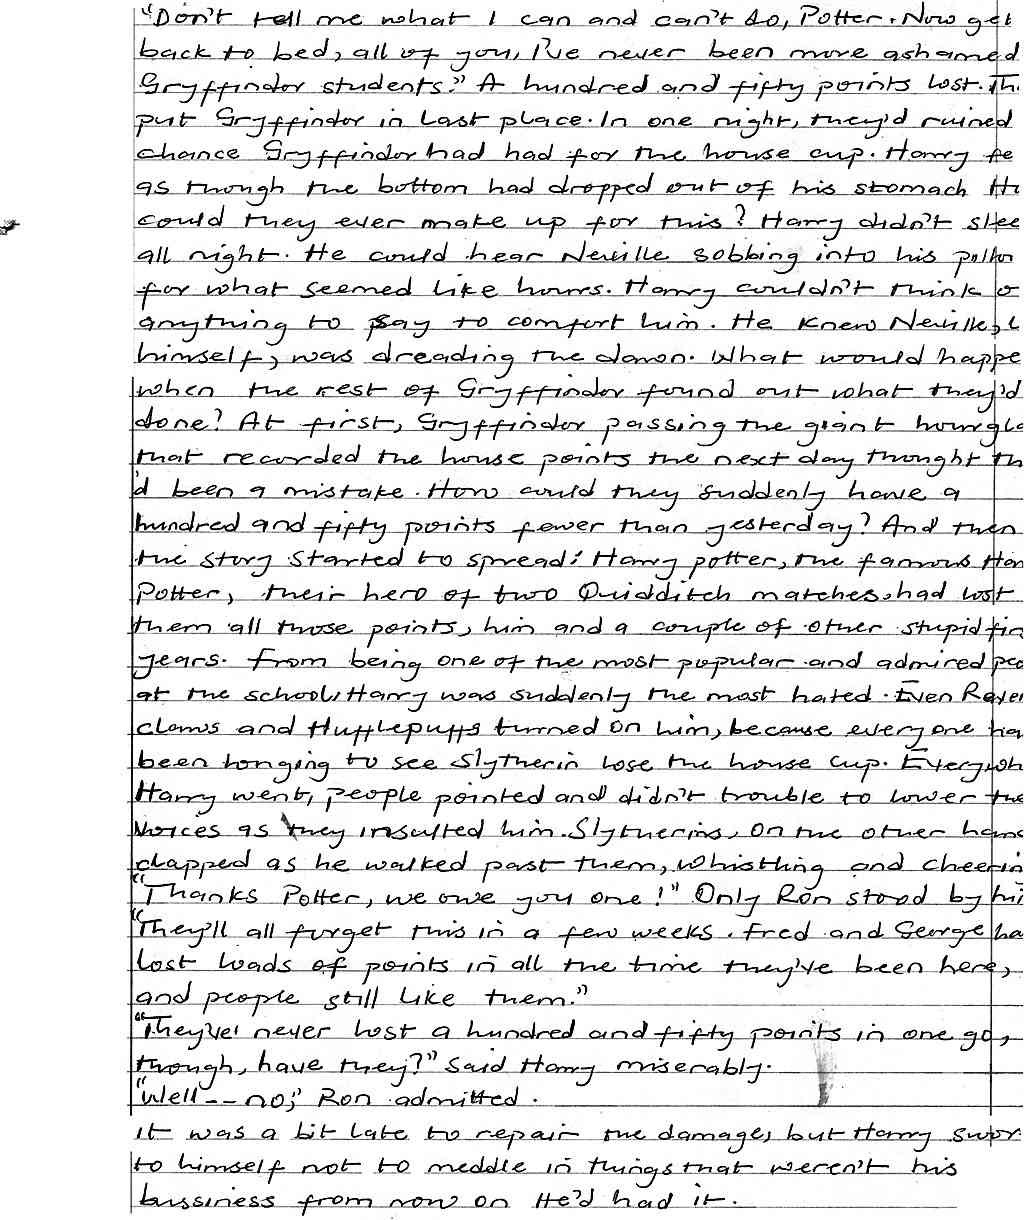 "Don't tell me what I can and can't do, Potter. Now get
back to bed, all of you, I've never been more ashamed
Gryffindor students." A hundred and fifty points lost. Th
put Gryffindor in last place. In one night, they'd ruined
chance Gryffindor had had for the house cup. Harry fe
as though the bottom had dropped out of his stomach
could they ever make up for this? Harry didn't slee
all night. He could hear Neville sobbing into his pillow
for what seemed like hours. Harry couldn't think o
anything to say to comfort him. He knew Neville, l
himself, was dreading the dawn. What would happe
when the rest of Gryffindor found out what they'd
done? At first, Gryffindor passing the giant hourgla
that recorded the house points the next day thought th
'd been a mistake. How could they suddenly have a
hundred and fifty points fewer than yesterday? And then
the story started to spread: Harry potter, the famous Har
Potter, their hero of two Quidditch matches, had lost
them all those points, him and a couple of other stupid fir
years. From being one of the most popular and admired peo
at the school, Harry was suddenly the most hated. Even Raven
claws and Hufflepuffs turned on him, because everyone ha
been longing to see Slytherin lose the house cup. Everywh
Harry went, people pointed and didn't trouble to lower the
Voices as they insulted him. Slytherins, on the other hand
clapped as he walked past them, whistling and cheerin
"Thanks Potter, we owe you one!" Only Ron stood by hi
"They'll all forget this in a few weeks. Fred and George ha
lost loads of points in all the time they've been here,
and people still like them."
"They've never lost a hundred and fifty points in one go,
though, have they?" Said Harry miserably.
"Well -- no," Ron admitted.
it was a bit late to repair the damage, but Harry swor
to himself not to meddle in things that weren't his
bussiness from now on He'd had it.